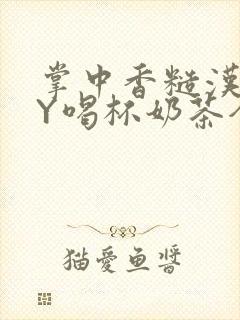 掌中香糙漢
Y喝杯奶茶
猫愛魚醬